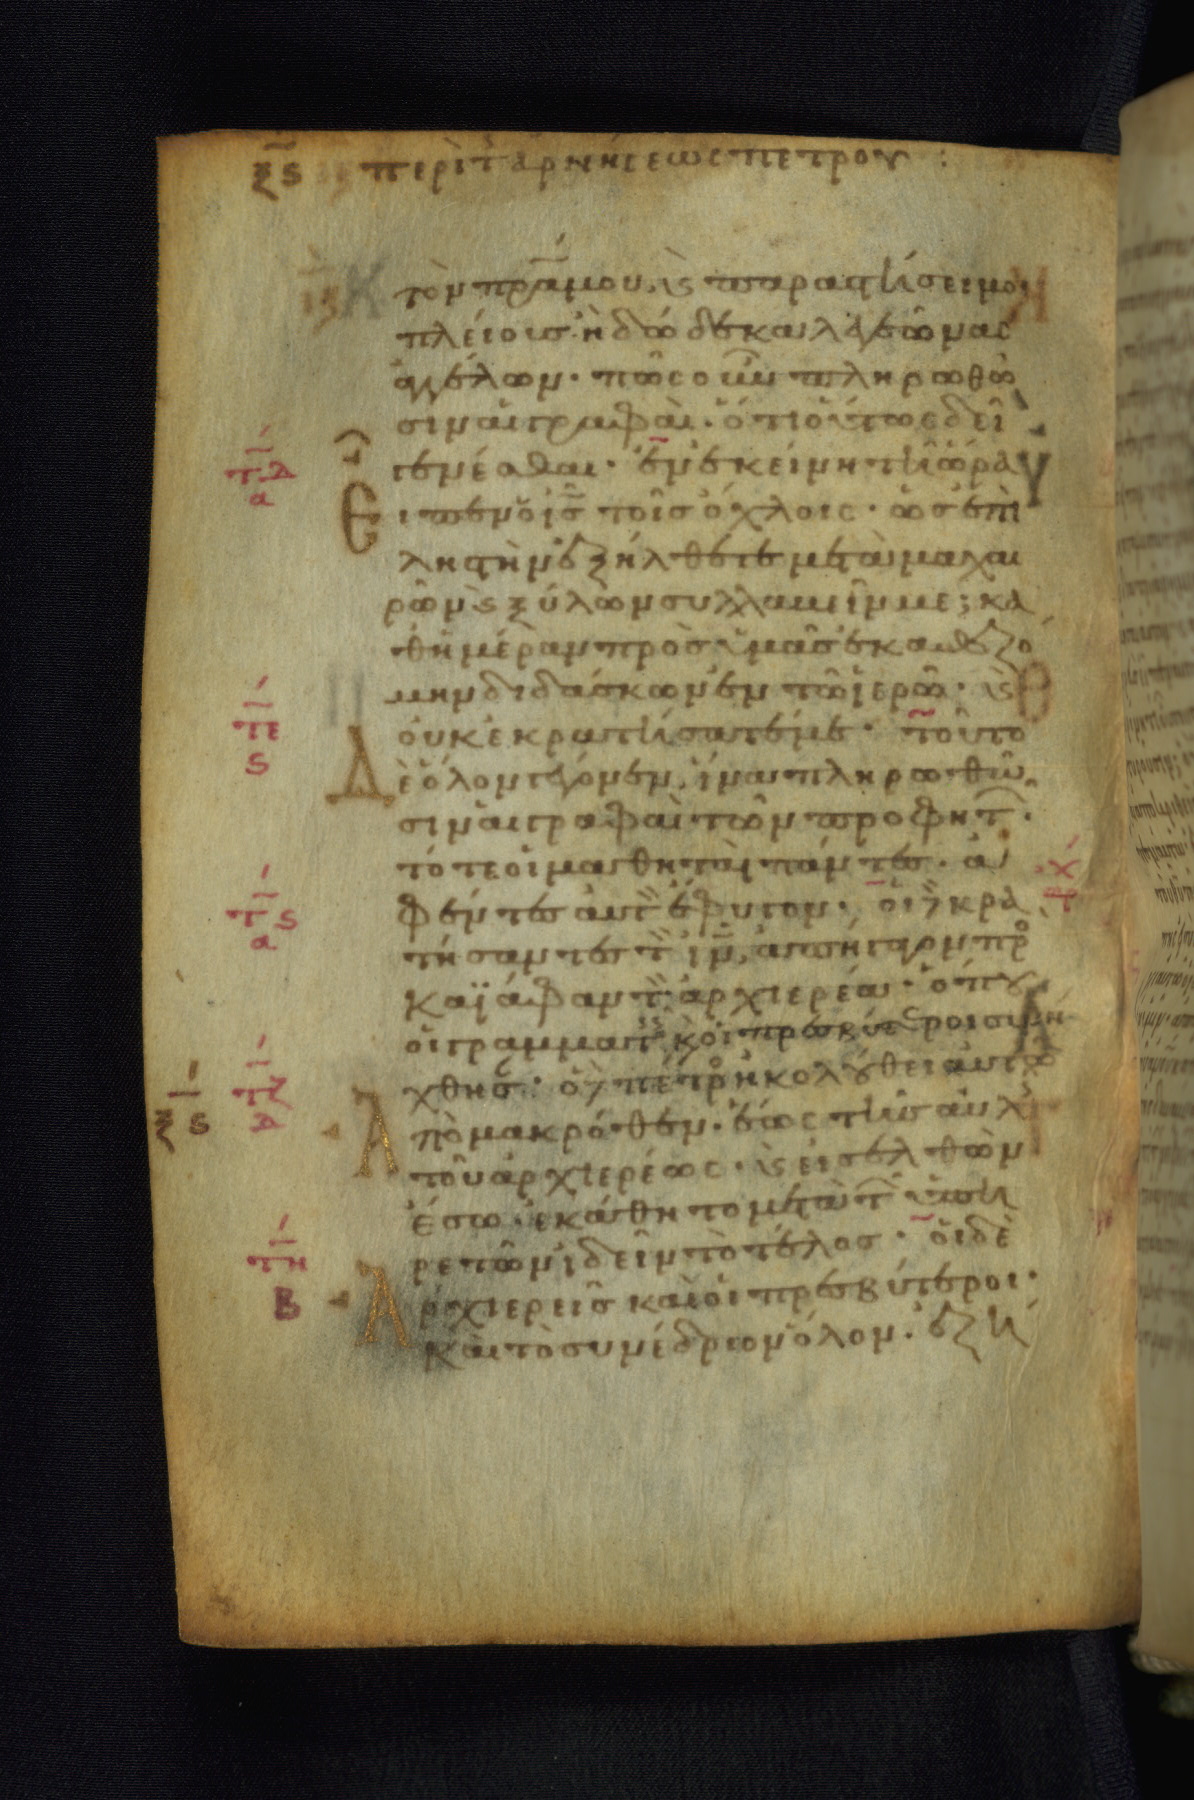 ξϛ περὶ τ ἀρνήσεως πετρου :
τὸν πρ̅α μου, ϗ παραστήσει μοι
πλείους ἢ δώδεκα λεγεῶνας
ἀγγέλων · πῶς οὖν πληρωθῶ
σιν αἱ γραφαὶ · ὅτι οὕτως δεῖ
γενέσθαι · ἐν ἐκείνη τῆ ὥρα
Εἶπεν ὁ ις̅ τοῖς ὄχλοις · ὡς ἐπὶ
ληστὴν ἐξήλθετε μετὰ μαχαι
ρῶν ϗ ξύλων συλλαβεῖν με; κα
θημέραν πρὸς ὑμᾶς ἐκαθεζό
μην διδάσκων ἐν τῶ ἱερῶ · ϗ
οὐκ ἐκρατήσατέ με · τοῦτο
Δὲ ὅλον γέγονεν, ἵνα πληρωθῶ
σιν αἱ γραφαὶ τῶν προφητ ·
τότε οἱ μαθηταὶ πάντες · ἀ
φέντες αὐτ ἔφυγον · οἱ δὲ κρα
τήσαντες τ ιν̅, ἀπήγαγον πρ
καϊάφαν τ ἀρχιερέα · ὅπου
οἱ γραμματ ϗ οἱ πρεσβύτεροι συνή
χθησ · ὁ δὲ πέτρ ἠκολούθει αὐτῶ
Ἀπὸ μακρόθεν · ἕως τῆς αὐλ
τοῦ ἀρχιερέως · ϗ εἰσελθὼν
ἔσω · ἐκάθητο μετὰ τ ὑπη
ρετῶν ἰδεῖν τὸ τέλος · οἱ δὲ
Ἀρχιερεῖς καὶ οἱ πρεσβύτεροι ·
καὶ τὸ συνέδριον ὅλον · ἐζή